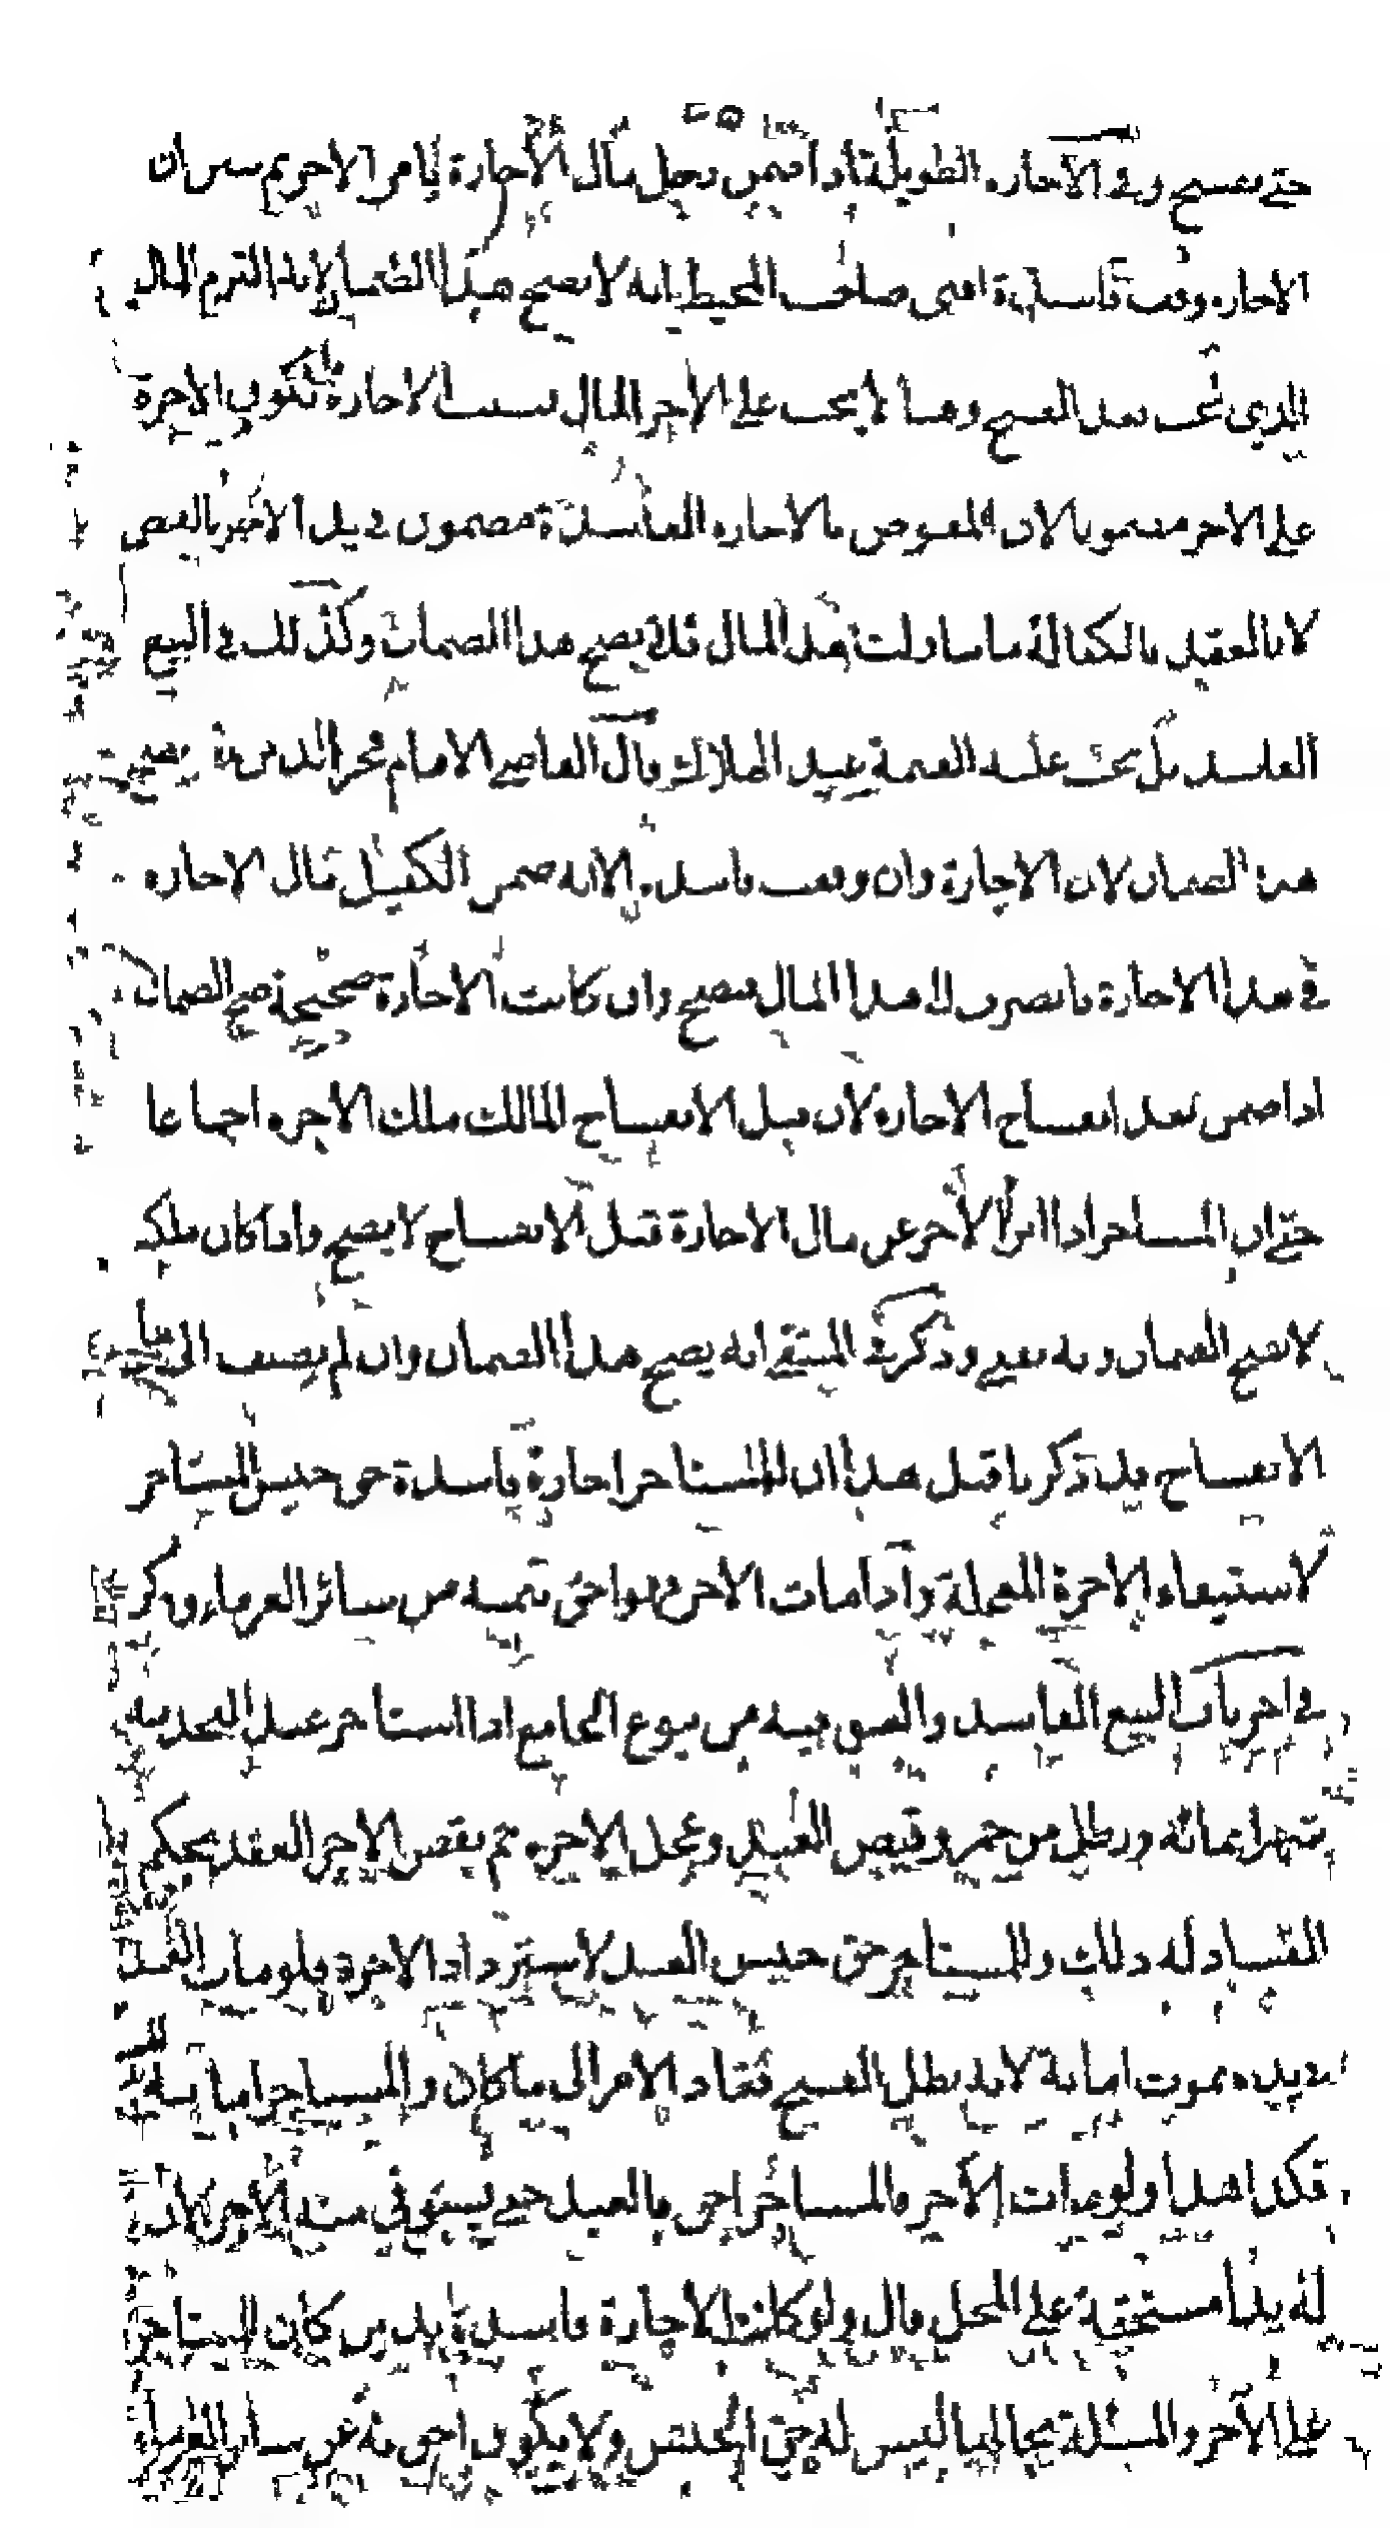 حتى يفسخ وفى الاجاره الطويلة اذا ضمن رجل مال الاجارة بامر الاجر ثم تبين ان
الاجاره وقعت فاسدة افتى صاحب المحيط انه لا يصح هذا الضمان لانه التزم المال
الذى يجب بعد الفسخ وهنا لا يجب على الاجر المال بسبب الاجارة لكون الاجرة
على الاجر مضمونا لان المقبوض بالاجاره الفاسدة مضمون فى يد الاجر بالقبض
لا بالعقد بالكفالة ما تناولت هذا المال فلا يصح هذا الضمان وكذلك فى البيع
الفاسد بل يجب عليه القيمة عند الهلاك وقال القاضى الامام فخر الدين يصح
هذا الضمان لان الاجارة وان وقعت فاسده الا انه ضمن الكفيل مال الاجاره
فى هذا الاجارة فانصرف الى هذا المال فيصح وان كانت الاجارة صحيحة صح الضمان
اذا ضمن بعد انفساخ الاجاره لان قبل الانفساخ المالك ملك الاجره اجماعا
حتى ان المستاجر اذا ابرأ الاجر عن مال الاجارة قبل الانفساخ لا يصح واذا كان ملكه
لا يصح الضمان وبه يفتى وذكر فى المنتقى انه يصح هذا الضمان وان لم يضف الى ما
الانفساخ قد ذكرنا قبل هذا ان للمستاجر اجارة فاسدة حق حبس المستاجر
لاستيفاء الاجرة المعجلة واذا مات الاجر فهو احق بثمنه من سائر الغرماء وذكر
فى اخر باب البيع الفاسد والقبض فيه من بيوع الجامع اذا استاجر عبد اليخدمه
شهرا بمائة ورطل من خمر وقبض العبد وعجل الاجره ثم نقض الاجر العقد بحكم
الفساد له ذلك وللمستاجر حق حبس العبد لاسترداد الاجرة فلو مات العبد
فى يده يموت امانة لانه بطل الفسخ فعاد الامر الى ما كان والمستاجر امانة
فكذا هذا ولو مات الاجر فالمستاجر احق بالعبد حتى يستوفى منه الاجر لان
له يدا مستحقة على المحل قال ولو كانت الاجارة فاسدة بدين كان للمستاجر
على الآجر والمسئلة بحالها ليس له حق الحبس ولا يكون احق به من سائر الغرماء